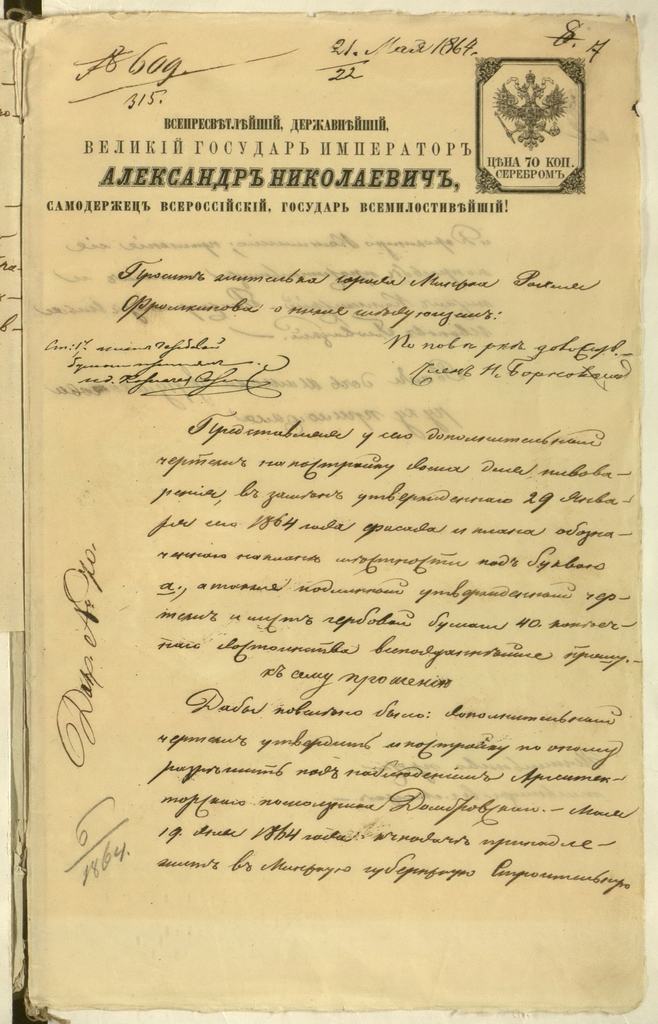 № 609.
315.
21. Мая 1864.
22
6. 7
ЦѢНА 70 КОП.
СЕРЕБРОМЪ
ВСЕПРЕСВѢТЛѢЙШІЙ, ДЕРЖАВНѢЙШІЙ,
ВЕЛИКІЙ ГОСУДАРЬ ИМПЕРАТОРЪ
АЛЕКСАНДРЪ НИКОЛАЕВИЧЪ,
САМОДЕРЖЕЦЪ ВСЕРОССІЙСКІЙ, ГОСУДАРЬ ВСЕМИЛОСТИВѢЙШІЙ!
Проситъ жителька города Минска
Фрумкинова о ниже слѣдующемъ:
Представляя у сего дополнительный
чертежъ на постройку дома для пивова-
ренія, въ замѣнъ утвержденнаго 29 Янва-
ря сего 1864 года фасада и плана обозна-
ченнаго на планѣ мѣстности подъ буквою
а., а также подлинный утвержденный чер-
тежъ и листъ гербовой бумаги 40 копѣеч-
наго достоинства всеподданнѣйше прошу.
къ сему прошенію
Дабы повелѣно было: дополнительный
чертежъ утвердить и постройку по оному
разрѣшить подъ наблюденіемъ Архитек-
торскаго помощника Домбровскаго. – Мая
19 дня 1864 года. къ подачѣ принадле-
житъ въ Минскую губернскую Строительную
№ 70.
1864.